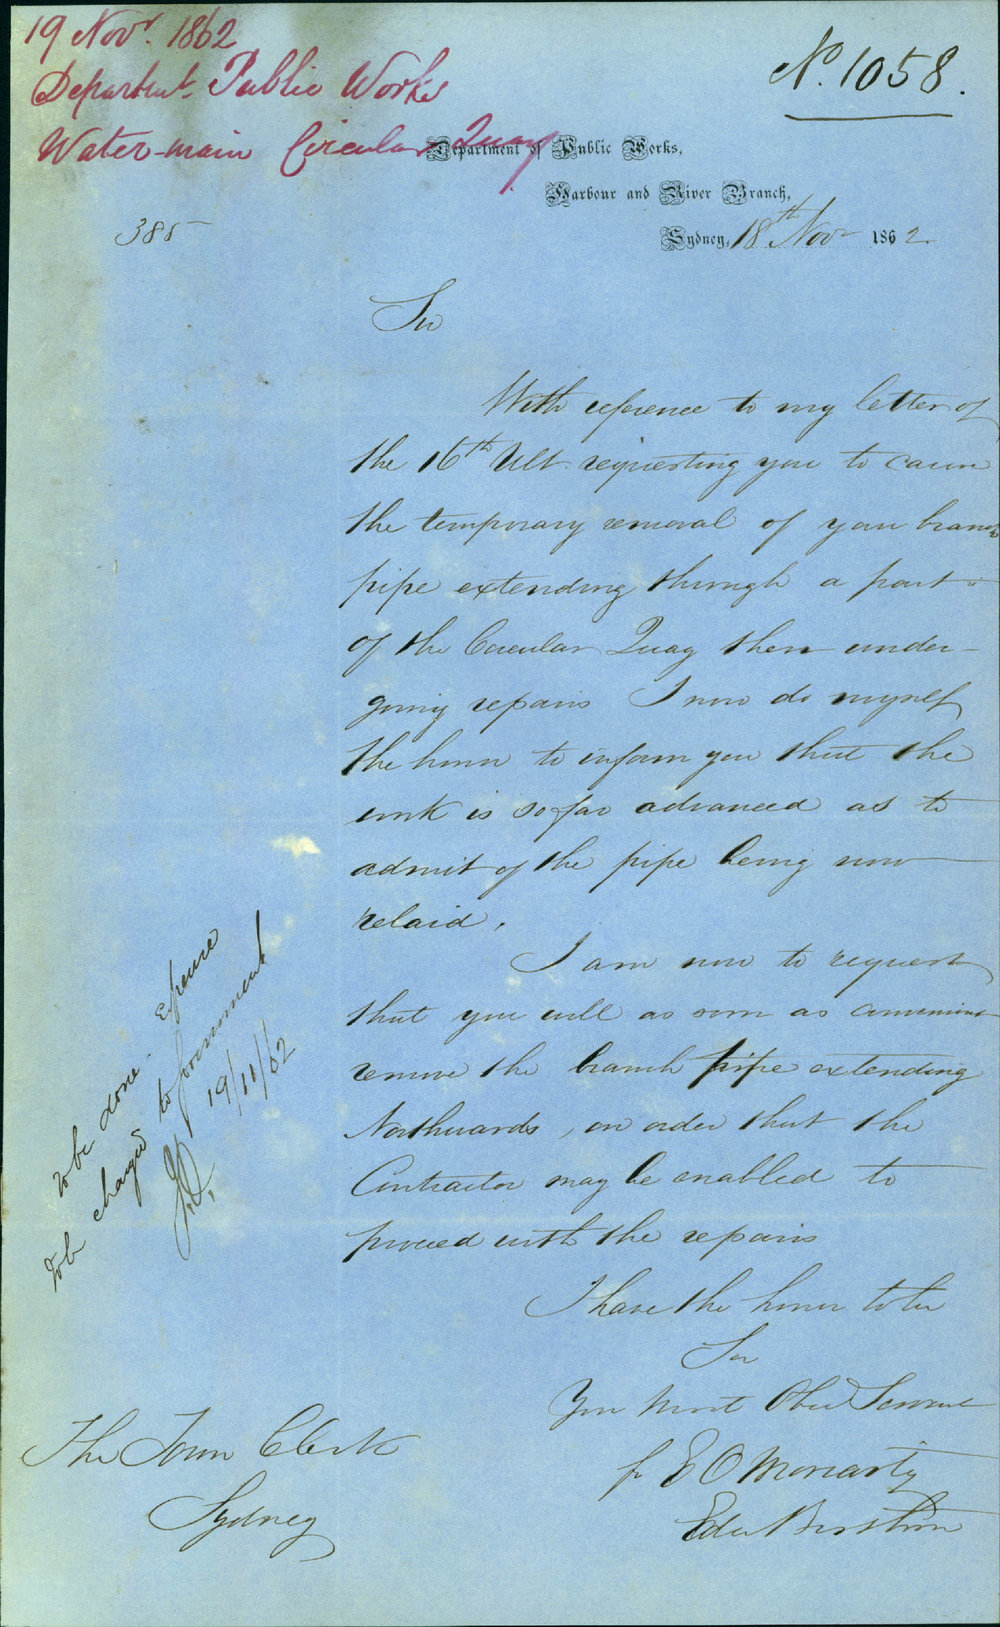 19 Novr. 1862
Departmt. Public Works
Water-main Circular Quay
No. 1058.
Department of Public Works,
Harbour and River Branch,
Sydney, 18th Novr 1862.
385
Sir
With reference to my letter of
the 16th Ult. requesting you to cause
the temporary removal of your branch
pipe extending through a part
of the Circular Quay then under-
going repairs I now do myself
the honor to inform you that the
work is so far advanced as to
admit of the pipe being now
relaid.
I am now to request
that you will as soon as convenient
remove the branch pipe extending
Northwards, in order that the
Contractor may be enabled to
proceed with the repairs
I have the honor to be
Sir
Your most Obed Servant
p E O Moriarty
The Town Clerk
Sydney
to be done. Expense
to be charged to Government
19/11/62